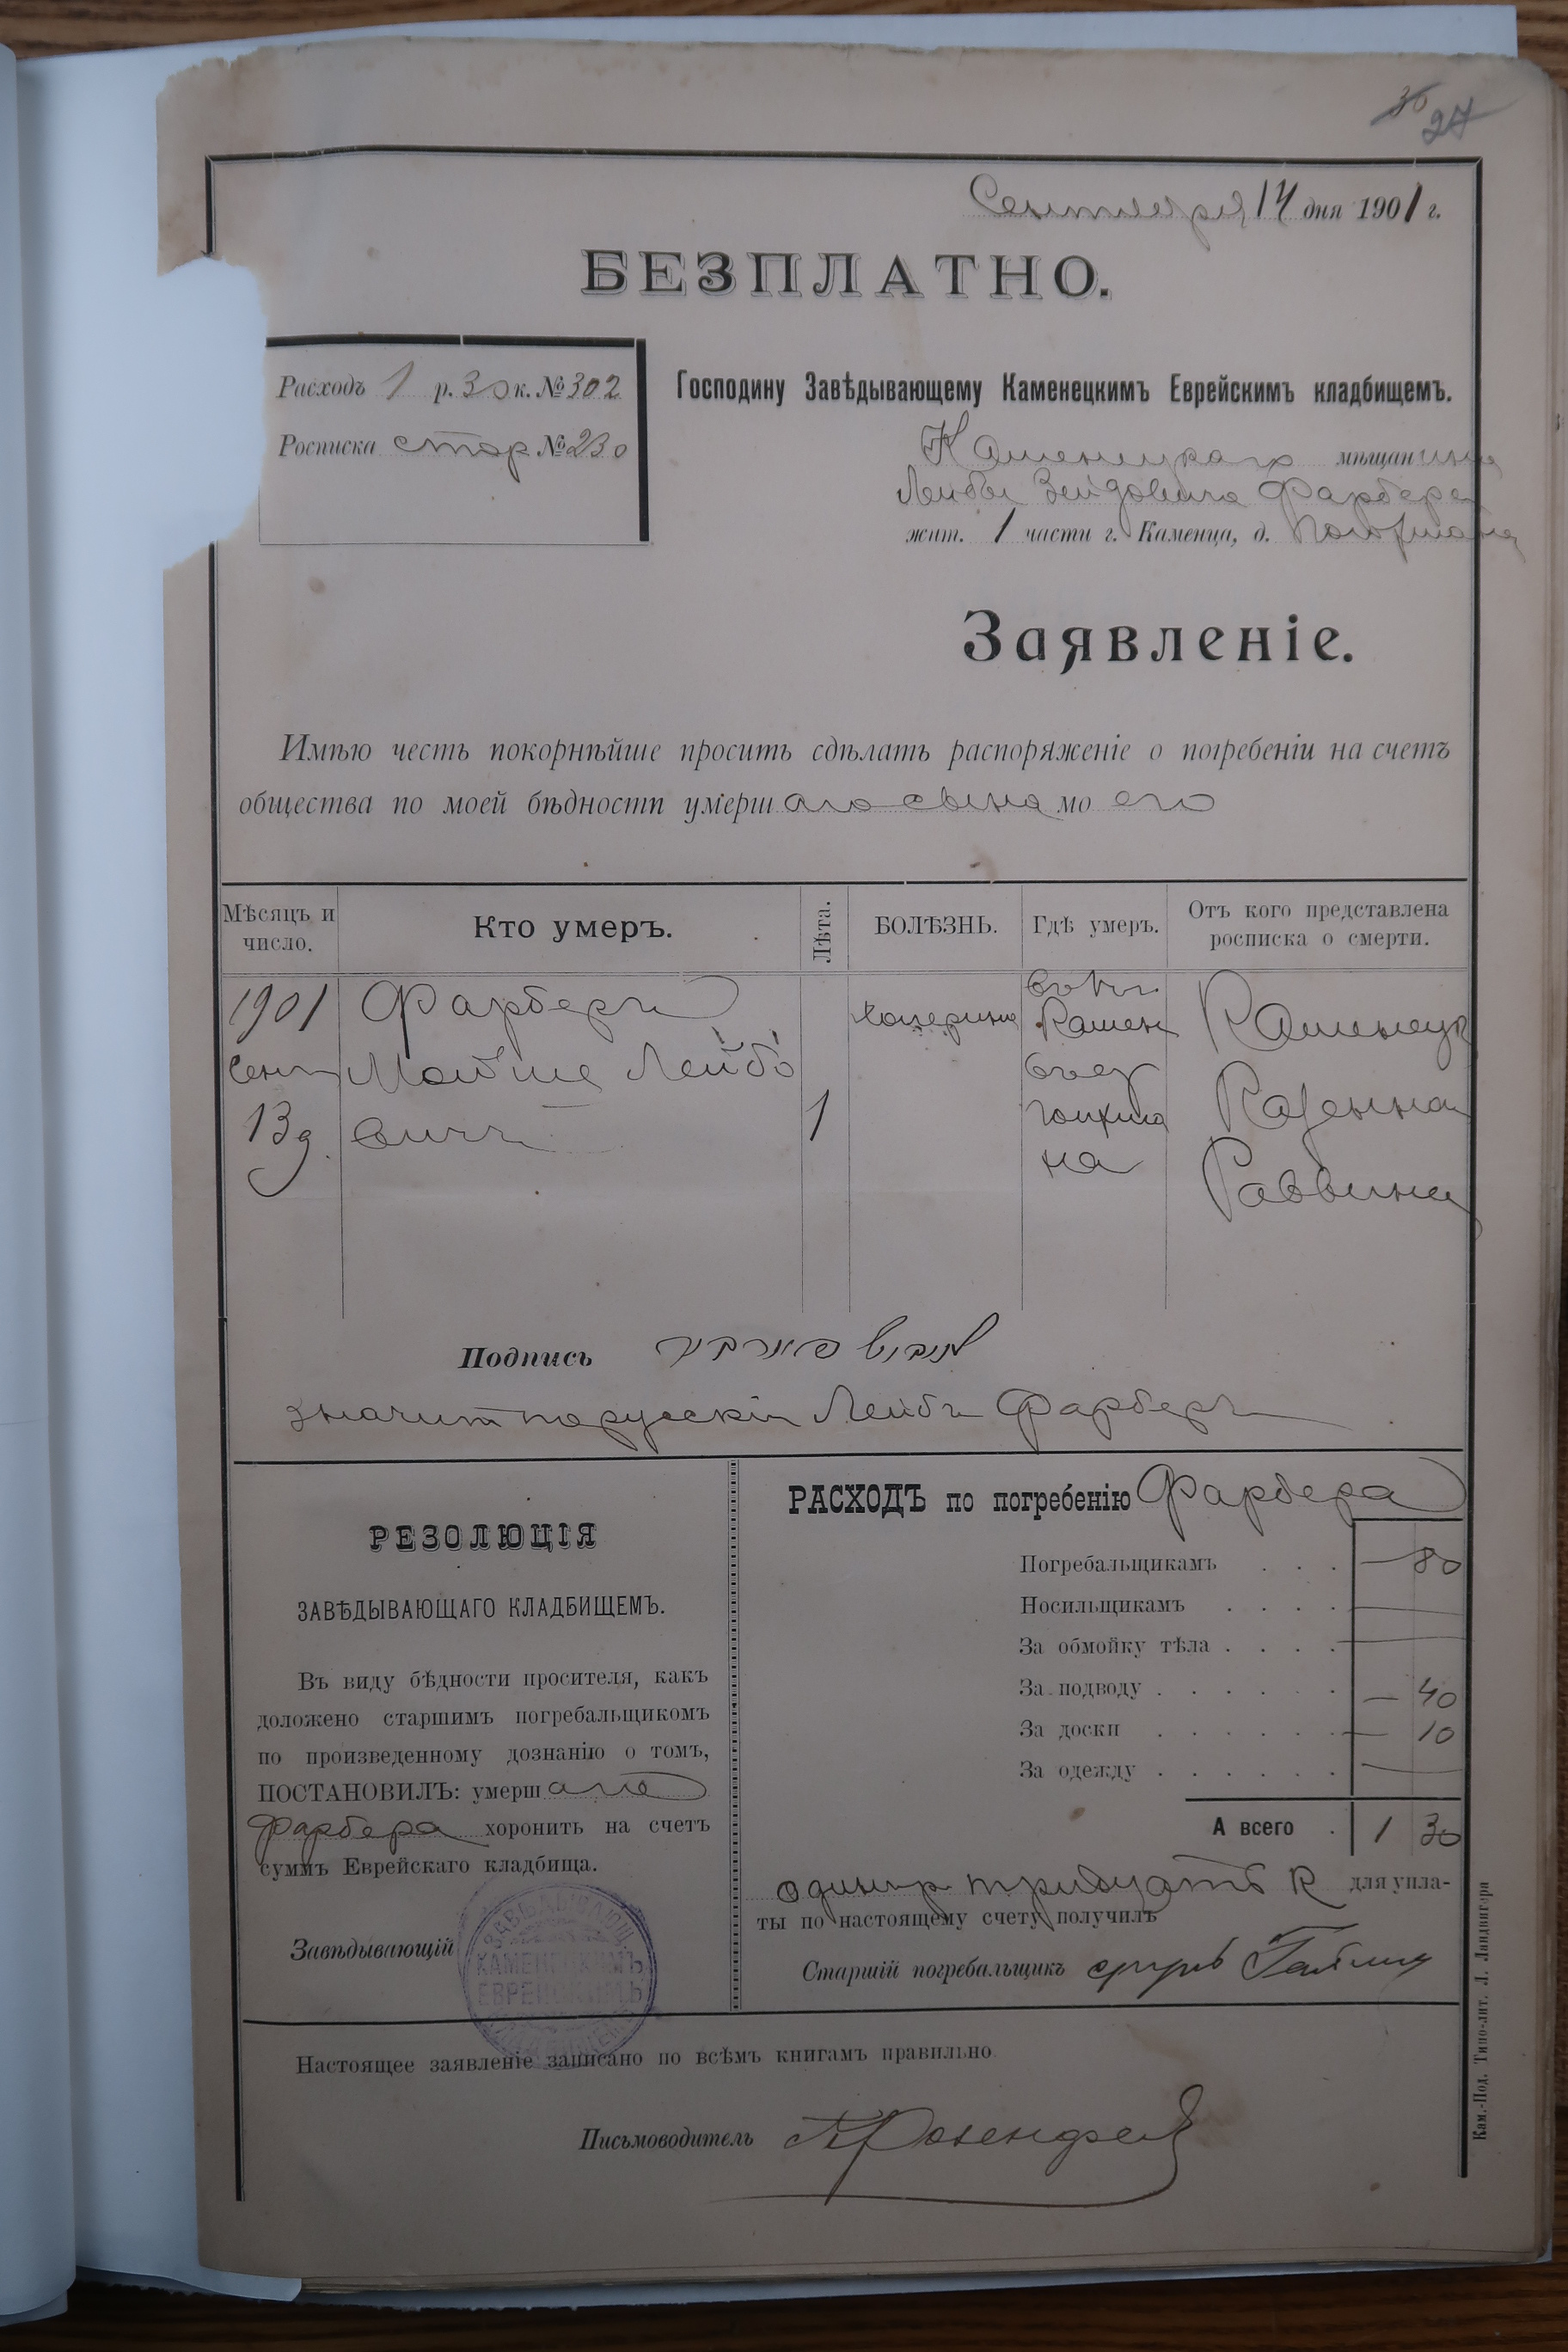 27
Сентября 14 дня 1901 г.
БЕЗПЛАТНО.
Расходъ 1 р. 30 к. № 302
Росписка стор № 230
Господину Завѣдывающему Каменецкимъ Еврейскимъ кладбищемъ.
Каменецкаго мѣщанина
Лейбы Зейдовича Фарбера
жит. 1 части г. Каменца, д.
Заявленіе.
Имѣю честь покорнѣйше просить сдѣлать распоряженіе о погребеніи на счетъ
общества по моей бѣдности умершаго сына моего
Мѣсяцъ и число. Кто умеръ. Лѣта. БОЛѢЗНЬ. Гдѣ умеръ. Отъ кого представлена росписка о смерти.
1901 Фарберъ Камен Каменецк
Сент Мойше Лейбо Казенна
13 д. вичъ 1 на Раввина
Подпись פארבער
значит порусскій Лейбъ Фарберъ
РЕЗОЛЮЦІЯ
ЗАВѢДЫВАЮЩАГО КЛАДБИЩЕМЪ.
Въ виду бѣдности просителя, какъ
доложено старшимъ погребальщикомъ
по произведенному дознанію о томъ,
ПОСТАНОВИЛЪ: умершаго
Фарбера хоронить на счетъ
суммъ Еврейскаго кладбища.
Завѣдывающій
ЗАВѢДЫВАЮЩ. КАМЕНЕЦКИМЪ ЕВРЕЙСКИМЪ
РАСХОДЪ по погребенію Фарбера
Погребальщикамъ . . . — 80
Носильщикамъ . . . . —
За обмойку тѣла . . . . —
За подводу . . . . . . — 40
За доски . . . . . . — 10
За одежду . . . . . . —
А всего . 1 30
один р тридцать к для упла-
ты по настоящему счету получилъ
Старшій погребальщикъ
Настоящее заявленіе записано по всѣмъ книгамъ правильно
Письмоводитель Розенфел
Кам.-Под. Типо-лит. Л. Ландвигера